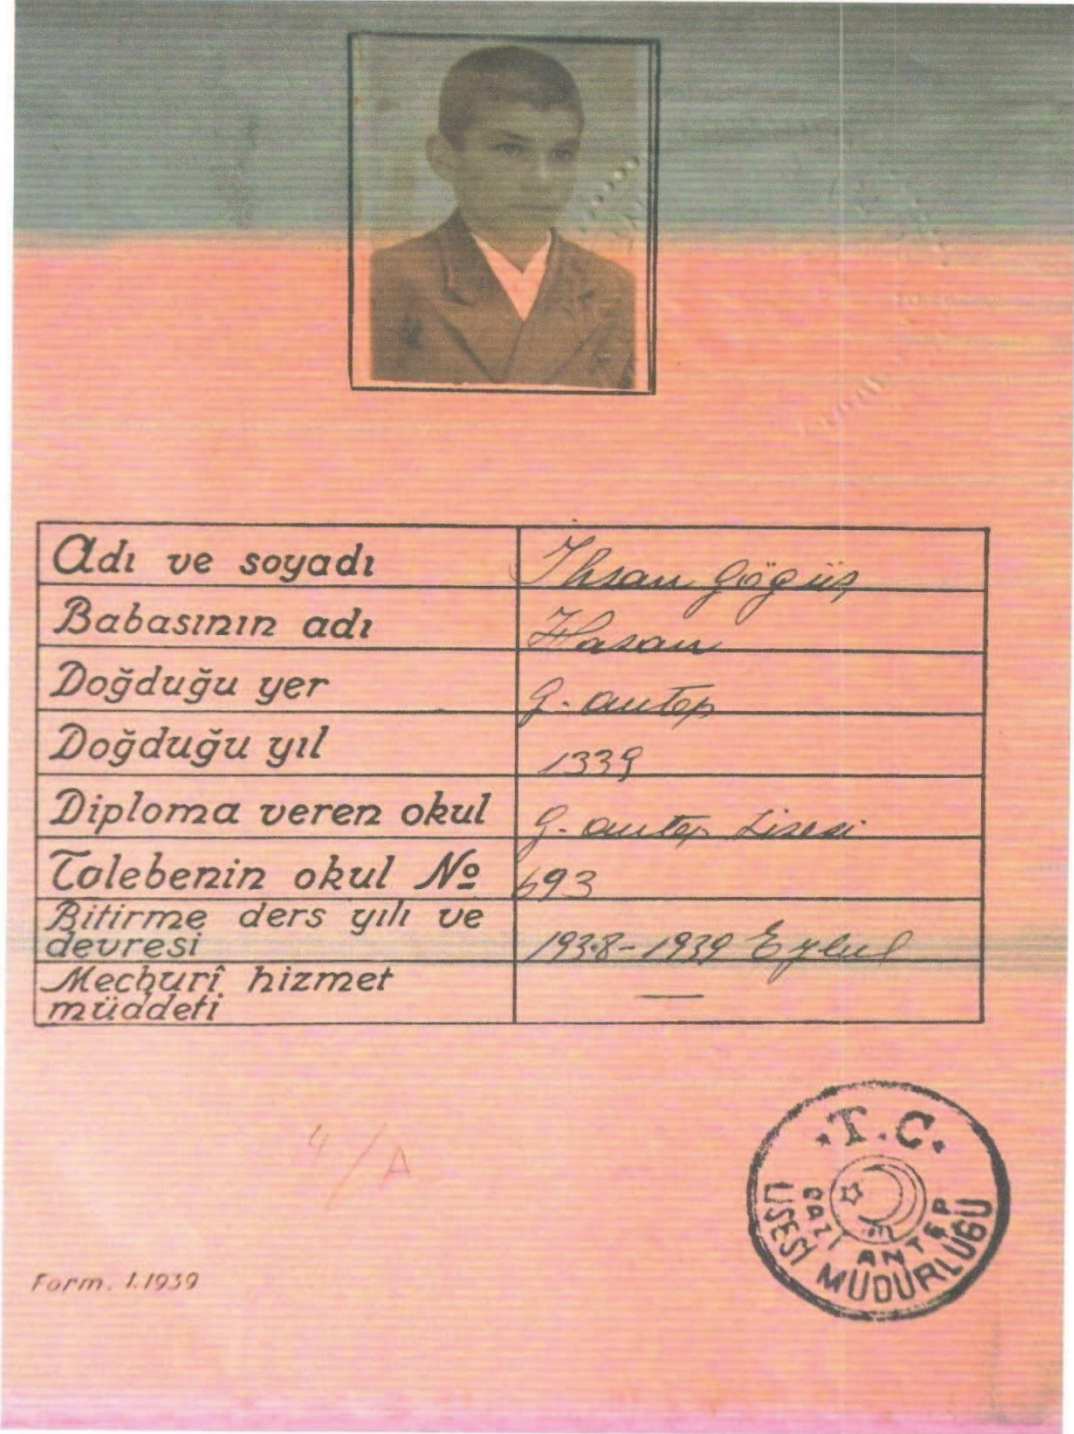 Adı ve soyadı Ihsan Göğüş
Babasının adı Hasan
Doğduğu yer G. antep
Doğduğu yıl 1339
Diploma veren okul G. antep Lisesi
Talebenin okul № 693
Bitirme ders yılı ve
devresi 1938-1939 Eylul
Mecburî hizmet
müddeti —
4/A
T.C.
GAZİ ANTEP
LİSESİ MÜDÜRLÜĞÜ
Form. 1.1939